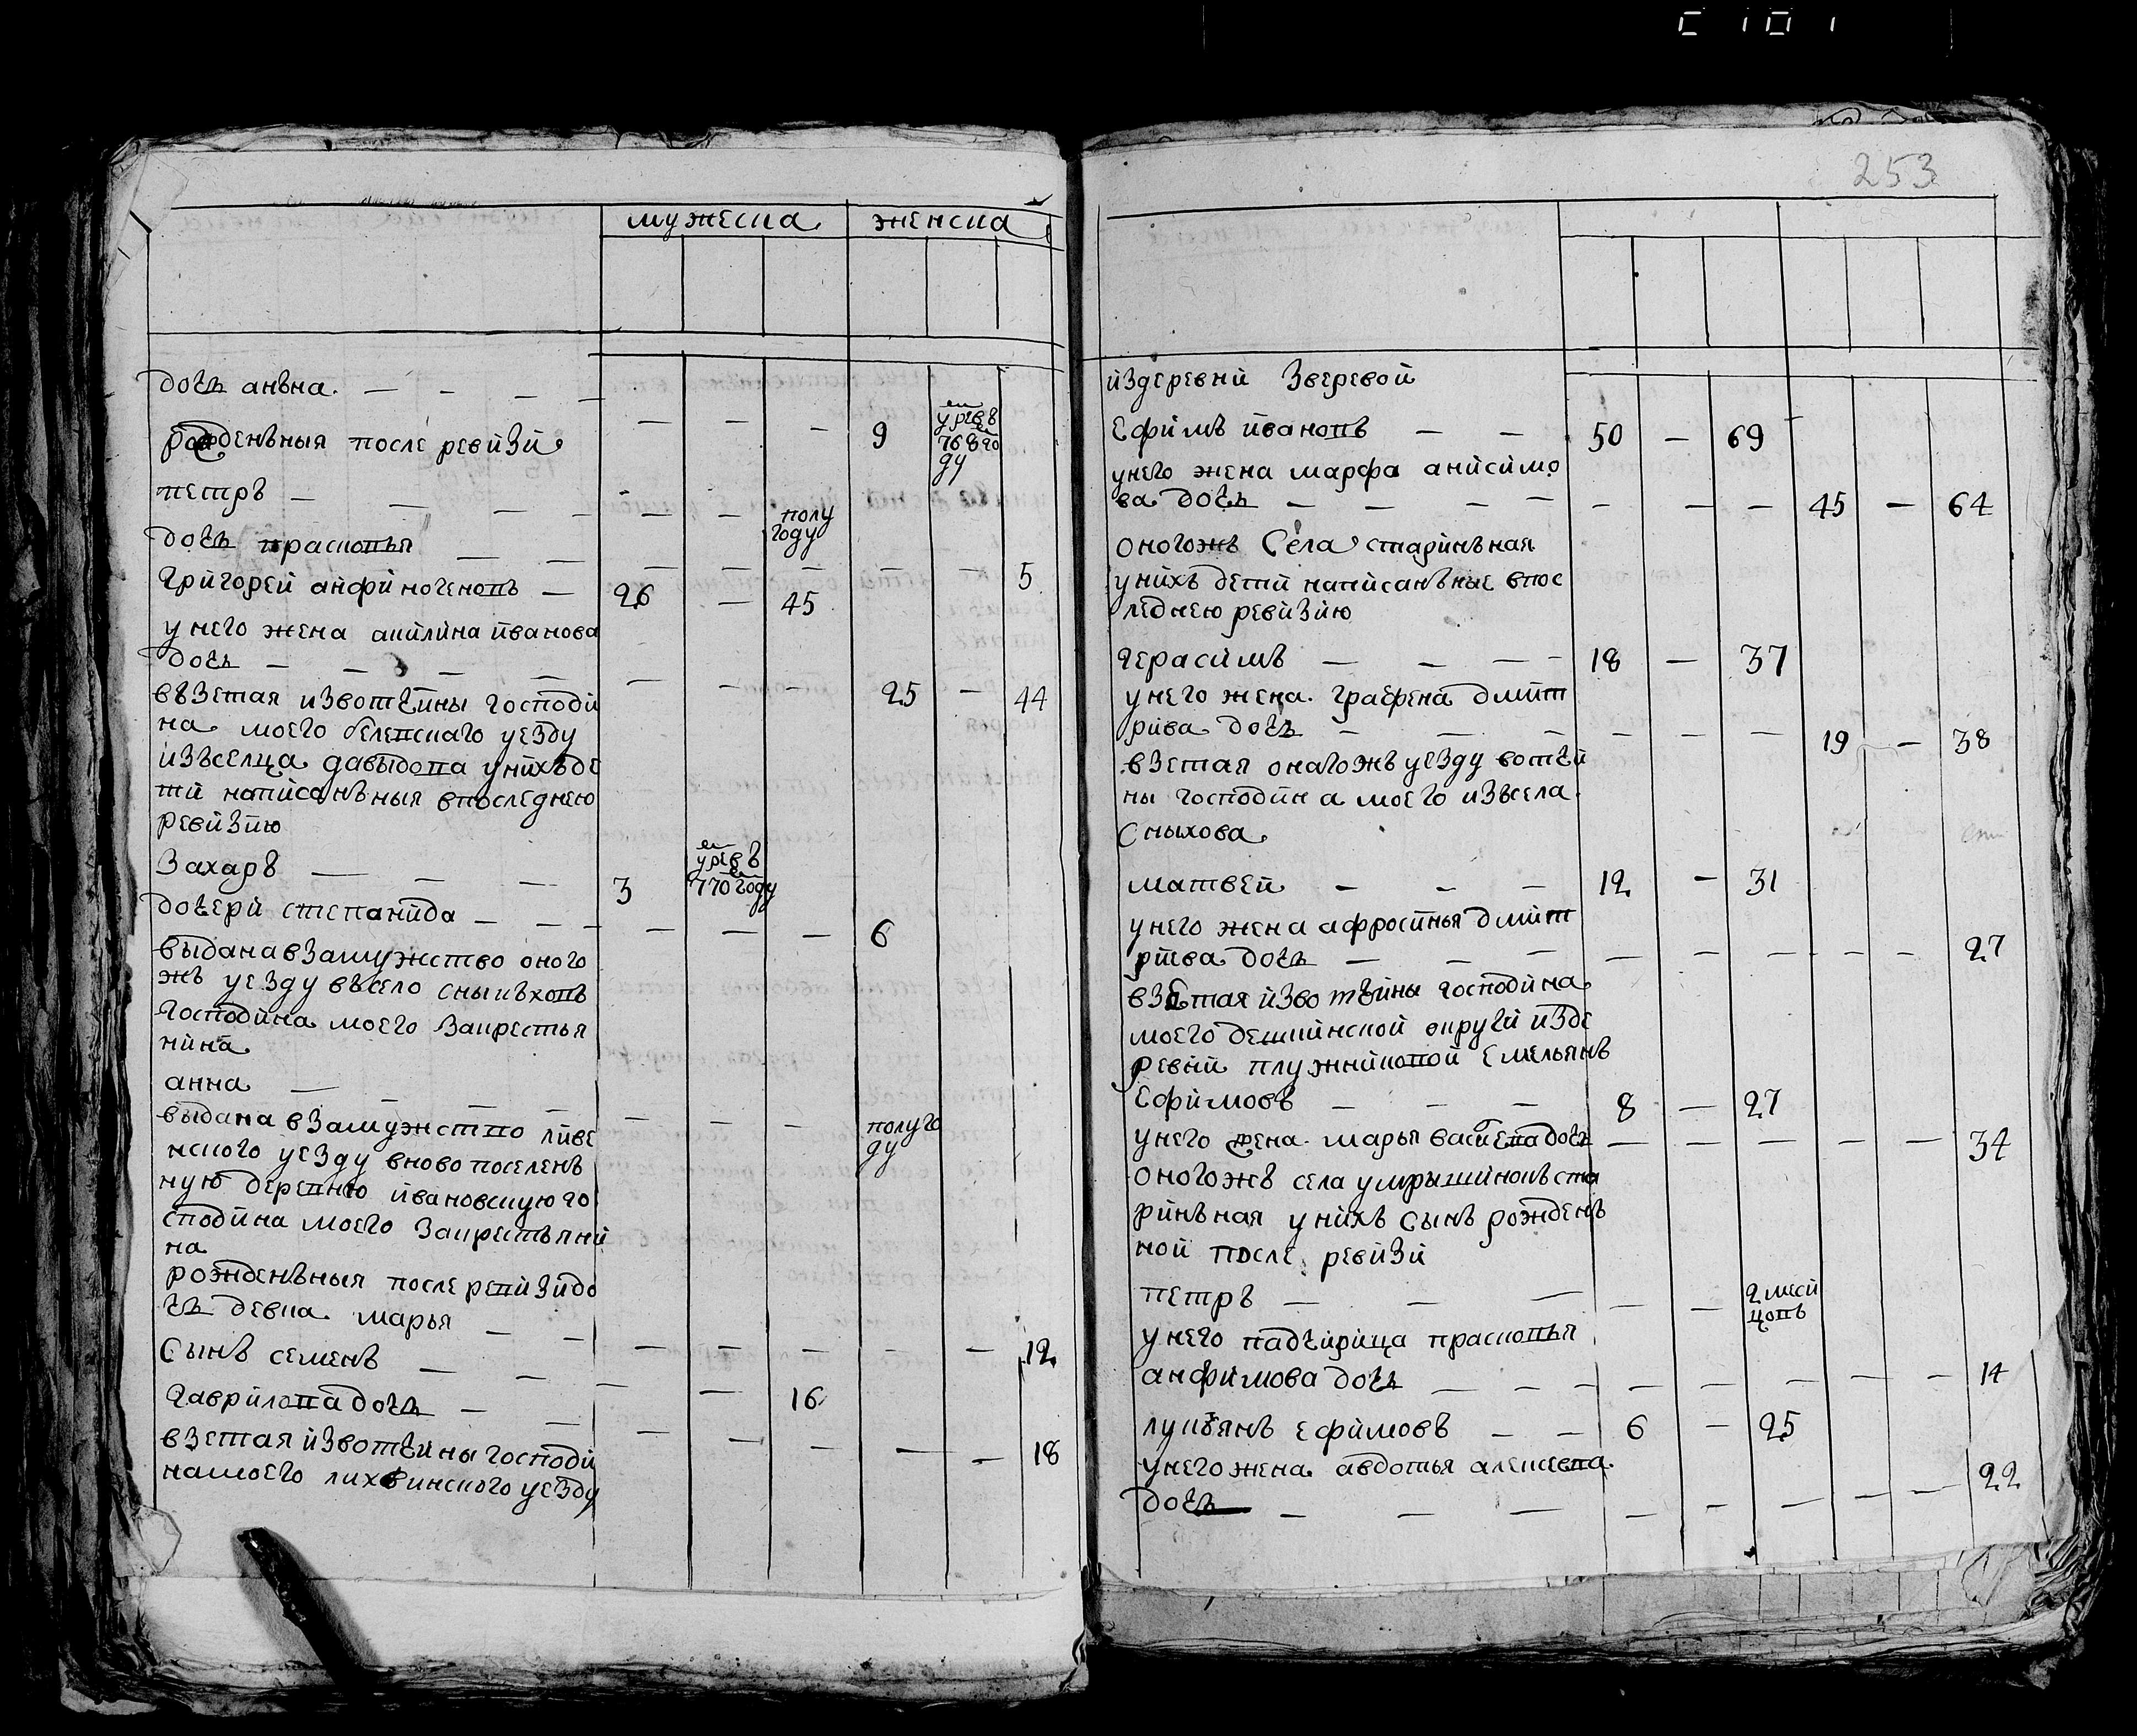 мужеска женска
дочь анъна — — — —
— — — 9 умре въ 768 го
ду
рожденъныя после ревизи
петръ — — — — — — — полу
году
дочь прасковья — — — — — — — — 5
григорей анфиногеновъ — 26 — 45
у него жена акилина иванова
дочь — — — — — — — 25 — 44
възетая извотчины господи
на моего белевскаго уезду
изъселца давыдова унихъде
ти написанъныя впоследнею
ревизию
Захаръ — — — 3 умре въ
770 году
дочери степанида — — — — — — 6
выдана взамужство оного
жъ уезду въсело
господина моего закрестья
нина
анна — — — — — — — полуго
ду
выдана взамужство ливе
нского уезду вново поселенъ
ную деревню ивановскую го
сподина моего закрестьяни
на
рожденъныя после ревизи до
чь девка марья — — — — — — — 12
Сынъ семенъ — — — — 16
гаврилова дочь — — — — — — — 18
взетая извотчины господи
намоего лихвинского уезду
253
издеревни Зверевой
Ефимъ ивановъ — — 50 — 69
унего жена марфа анисимо
ва дочь — — — — — — — 45 — 64
оногожъ Села старинъная
унихъ дети написанъные впос
леднею ревизию
герасимъ — — — — 18 — 37
унего жена графена дмит
рива дочь — — — — — — 19 — 38
взетая онагожъ уезду вотчи
ны господина моего изъсела
Сныхова
матвей — — — 12 — 31
унего жена афросинья дмит
риева дочь — — — — — — — — 27
взетая извотчины господина
моего округи изде
ревни плужниковой Емельянъ
Ефимовъ — — — 8 — 27
унего жена марья дочь — — — — — 34
оногожъ села ста
ринъная унихъ Сынъ рожденъ
ной после ревизи
петръ — — — — — 2 меси
цовъ
унего падчирица прасковья
анфимова дочь — — — — — — — — 14
лукьянъ ефимовъ — — 6 — 25
унего жена авдотья алексевна
дочь — — — — — — — — 22